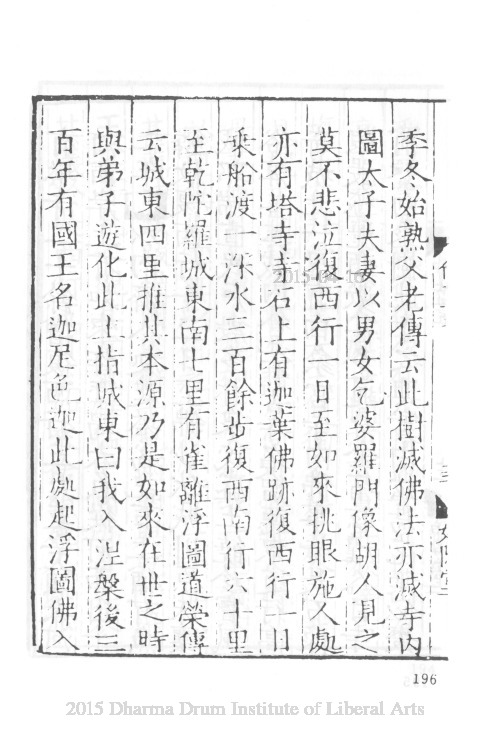 季冬始熟父老傳云此樹滅佛法亦滅寺内
圖太子夫妻以男女乞婆羅門像胡人見之
莫不悲泣復西行一日至如來挑眼施人處
亦有塔寺寺石上有迦葉佛跡復西行一日
乗船渡一深水三百餘步復西南行六十里
至乾陀羅城東南七里有雀離浮圖道榮傳
云城東四里推其本源乃是如來在世之時
與弟子遊化此土指城東曰我入涅槃後三
百年有國王名迦尼色迦此處起浮圖佛入
196
2015 Dharma Drum Institute of Liberal Arts